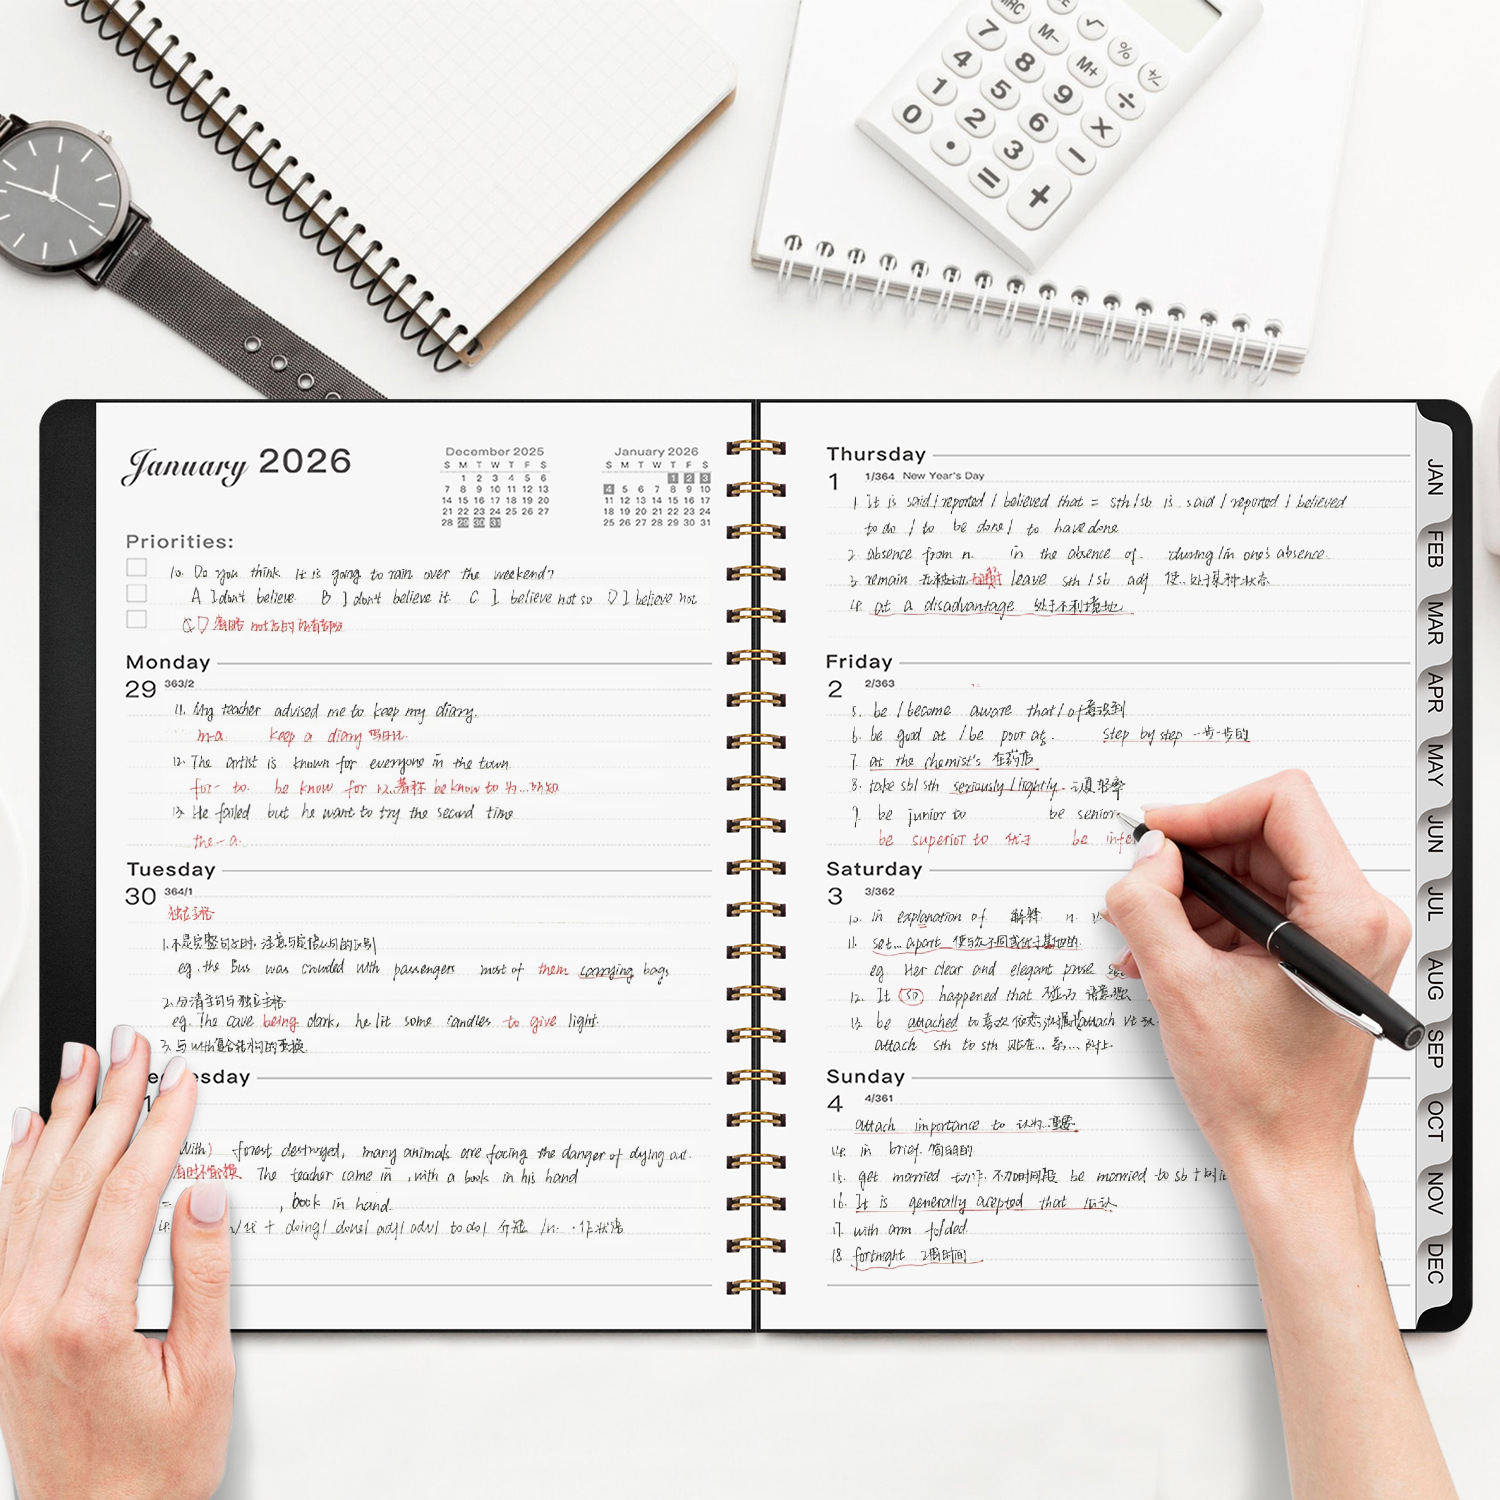 MRC √ % +/-
7 M- M+ ÷
4 8 9 ×
1 5 6 −
0 2 3 +
• =
January 2026
December 2025
S M T W T F S
1 2 3 4 5 6
7 8 9 10 11 12 13
14 15 16 17 18 19 20
21 22 23 24 25 26 27
28 29 30 31
January 2026
S M T W T F S
1 2 3
4 5 6 7 8 9 10
11 12 13 14 15 16 17
18 19 20 21 22 23 24
25 26 27 28 29 30 31
Priorities:
10. Do you think it is going to rain over the weekend?
A I don't believe B I don't believe it C I believe not so D I believe not
CD 省略 not 后的所有部分
Monday
29 363/2
11. My teacher advised me to keep my diary.
m-a. keep a diary 写日记.
12. The artist is known for everyone in the town.
for- to. be know for 以..著称 be know to 为...所知
13. He failed but he want to try the second time
the-a.
Tuesday
30 364/1
独立主格
1.不是完整句子时, 注意与定语从句的区别
eg. the Bus was crowded with passengers most of them carrying bags
2.分清主句与独立主格
eg. The cave being dark, he lit some candles to give light.
3.与with复合结构的变换.
sday
With) forest destroyed, many animals are facing the danger of dying out.
The teacher came in , with a book in his hand
, book in hand.
+ doing/ done/ adj/ adv/ to do/ 介短 /n.
Thursday
1 1/364 New Year's Day
1 It is said / reported / believed that = sth/sb is said / reported / believed
to do / to be done / to have done
2. absence from n. in the absence of. during/in one's absence.
3. remain leave sth/sb adj 使..处于某种状态
4. at a disadvantage 处于不利境地
Friday
2 2/363
5. be / become aware that / of 意识到
6. be good at / be poor at. step by step 一步一步的
7. at the chemist's 在药店
8. take sb/sth seriously / lightly.
9. be junior to be senior
be superior to 优于 be infe
Saturday
3 3/362
10. in explanation of 解释 n.
11. set... apart 使与众不同或优于其他的.
eg. Her clear and elegant prose
12. It so happened that
13. be attached to 喜欢 attach
attach sth to sth 贴在... 系... 附上.
Sunday
4 4/361
attach importance to 认为..重要
14. in brief. 简明的
15. get married be married to sb
16. It is generally acepted that 公认
17. with arm folded.
18 fortnight 2周时间
JAN
FEB
MAR
APR
MAY
JUN
JUL
AUG
SEP
OCT
NOV
DEC